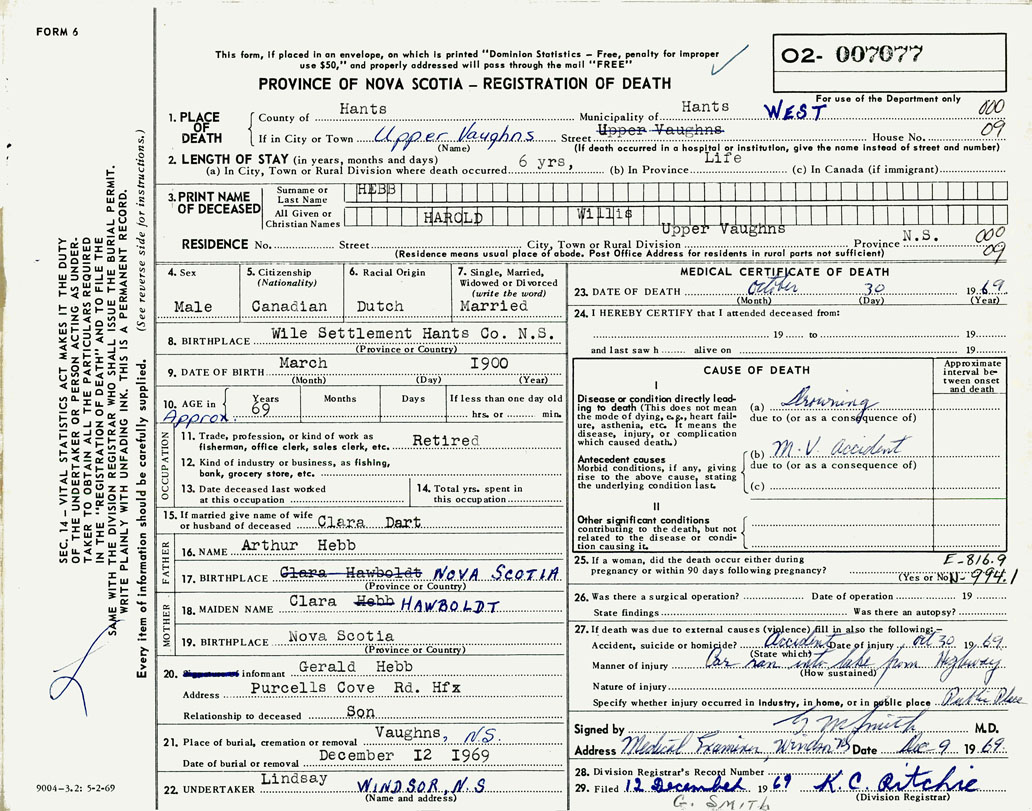 FORM 6
This form, if placed in an envelope, on which is printed "Dominion Statistics – Free, penalty for improper
use $50," and properly addressed will pass through the mail "FREE"
PROVINCE OF NOVA SCOTIA – REGISTRATION OF DEATH
02- 007077
For use of the Department only
1. PLACE OF DEATH
County of Hants Municipality of Hants WEST 000
If in City or Town Upper Vaughns Street Upper Vaughns House No. 09
(Name) (If death occurred in a hospital or institution, give the name instead of street and number)
2. LENGTH OF STAY (in years, months and days)
(a) In City, Town or Rural Division where death occurred 6 yrs, (b) In Province Life (c) In Canada (if immigrant)
3. PRINT NAME OF DECEASED
Surname or Last Name HEBB
All Given or Christian Names HAROLD Willis
RESIDENCE No. Street Upper Vaughns City, Town or Rural Division Province N.S. 000
(Residence means usual place of abode. Post Office Address for residents in rural parts not sufficient) 09
4. Sex
Male
5. Citizenship
(Nationality)
Canadian
6. Racial Origin
Dutch
7. Single, Married,
Widowed or Divorced
(write the word)
Married
8. BIRTHPLACE Wile Settlement Hants Co. N.S.
(Province or Country)
9. DATE OF BIRTH March I900
(Month) (Day) (Year)
10. AGE in Years Months Days If less than one day old
Approx. 69 hrs. or min.
OCCUPATION
11. Trade, profession, or kind of work as
fisherman, office clerk, sales clerk, etc. Retired
12. Kind of industry or business, as fishing,
bank, grocery store, etc.
13. Date deceased last worked
at this occupation
14. Total yrs. spent in
this occupation
15. If married give name of wife
or husband of deceased Clara Dart
FATHER
16. NAME Arthur Hebb
17. BIRTHPLACE Clara Hawboldt NOVA SCOTIA
(Province or Country)
MOTHER
18. MAIDEN NAME Clara Hebb HAWBOLDT
19. BIRTHPLACE Nova Scotia
(Province or Country)
20. informant Gerald Hebb
Address Purcells Cove Rd. Hfx
Relationship to deceased Son
21. Place of burial, cremation or removal Vaughns, N.S.
Date of burial or removal December I2 I969
22. UNDERTAKER Lindsay WINDSOR, N.S
(Name and address)
MEDICAL CERTIFICATE OF DEATH
23. DATE OF DEATH October 30 1969
(Month) (Day) (Year)
24. I HEREBY CERTIFY that I attended deceased from:
19 to 19
and last saw h alive on 19
CAUSE OF DEATH
Approximate
interval be-
tween onset
and death
I
Disease or condition directly lead-
ing to death (This does not mean
the mode of dying, e.g., heart fail-
ure, asthenia, etc. It means the
disease, injury, or complication
which caused death.)
(a) Drowning
due to (or as a consequence of)
Antecedent causes
Morbid conditions, if any, giving
rise to the above cause, stating
the underlying condition last.
(b) M.V. Accident
due to (or as a consequence of)
(c)
II
Other significant conditions
contributing to the death, but not
related to the disease or condi-
tion causing it.
25. If a woman, did the death occur either during E-816.9
pregnancy or within 90 days following pregnancy? (Yes or No) N-994.1
26. Was there a surgical operation? Date of operation 19
State findings Was there an autopsy?
27. If death was due to external causes (violence) fill in also the following:–
Accident, suicide or homicide? Accident Date of injury Oct 30 1969
(State which)
Manner of injury Car ran into lake from Highway
(How sustained)
Nature of injury
Specify whether injury occurred in Industry, in home, or in public place Public Place
Signed by Smith M.D.
Address Medical Examiner, Windsor NS Date Dec 9 1969
28. Division Registrar's Record Number
29. Filed 12 December 1969 K.C. Ritchie
(Division Registrar)
G. SMITH
SEC. 14 – VITAL STATISTICS ACT MAKES IT THE DUTY
OF THE UNDERTAKER OR PERSON ACTING AS UNDER-
TAKER TO OBTAIN ALL THE PARTICULARS REQUIRED
IN THE "REGISTRATION OF DEATH" AND TO FILE THE
SAME WITH THE DIVISION REGISTRAR WHO SHALL ISSUE THE BURIAL PERMIT.
WRITE PLAINLY WITH UNFADING INK. THIS IS A PERMANENT RECORD.
Every item of information should be carefully supplied. (See reverse side for instructions.)
9004-3.2: 5-2-69